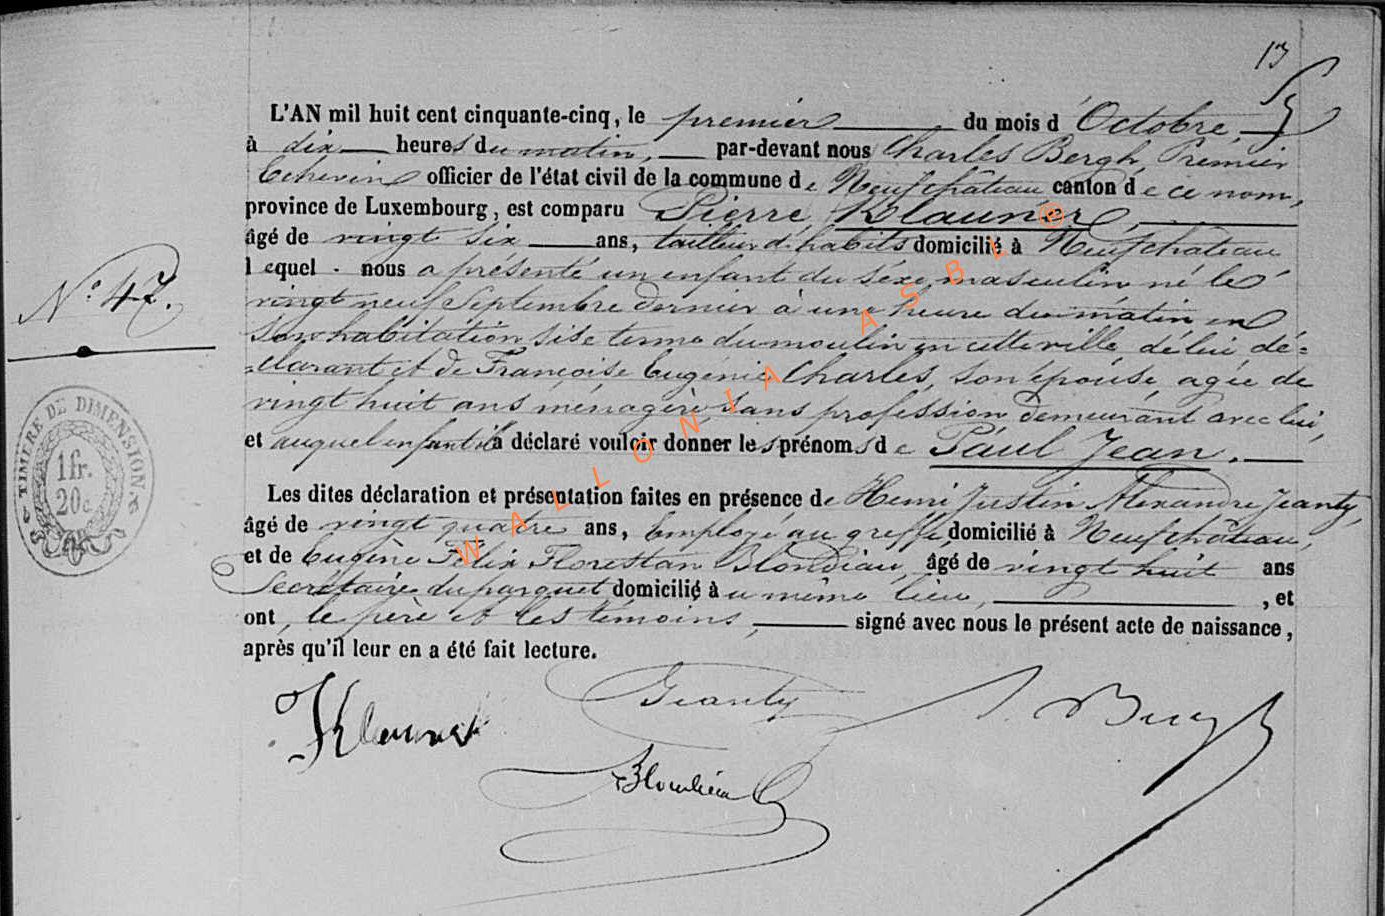 13
L'AN mil huit cent cinquante-cinq, le premier du mois d'Octobre,
à dix heures du matin, par-devant nous Charles Bergh, Premier
Echevin officier de l'état civil de la commune de Neufchâteau canton de ce nom,
province de Luxembourg, est comparu Pierre Klauner,
âgé de vingt six ans, tailleur d'habits domicilié à Neufchâteau
lequel nous a présenté un enfant du sexe masculin né le
N° 47.
vingt neuf Septembre dernier à une heure du matin en
son habitation sise terme du moulin en cette ville, de lui dé=
=clarant et de Françoise Eugenie Charles, son épouse, agée de
vingt huit ans ménagère sans profession demeurant avec lui,
et auquel enfant il a déclaré vouloir donner les prénoms de Paul Jean.
TIMBRE DE DIMENSION
1fr.
20c.
Les dites déclaration et présentation faites en présence de Henri Justin Alexandre Jeanty,
âgé de vingt quatre ans, Employé au greffe domicilié à Neufchâteau,
et de Eugène Felix Florestan Blondiau, âgé de vingt huit ans
Secrétaire du parquet domicilié au même lieu, , et
ont, le père et les témoins, signé avec nous le présent acte de naissance,
après qu'il leur en a été fait lecture.
Klauner
Jeanty
Bergh
Blondiau
WALLONIA ASBL ®